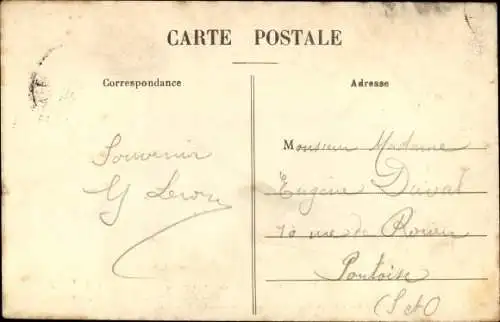 CARTE POSTALE
Correspondance
Adresse
Souvenir
Monsieur Madame
Eugène Duval
10 rue de Rouen
Pontoise
(S et O)